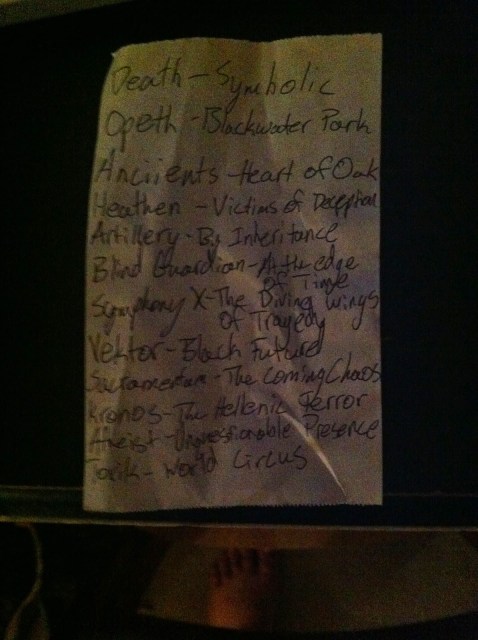 Death - Symbolic
Opeth - Blackwater Park
Anciients - Heart of Oak
Heathen - Victims of Deception
Artillery - By Inheritance
Blind Guardian - At the edge
of Time
Symphony X - The Divine Wings
of Tragedy
Vektor - Black Future
Sacramentum - The Coming Chaos
Kronos - The Hellenic Terror
Atheist - Unquestionable Presence
Toxik - World Circus